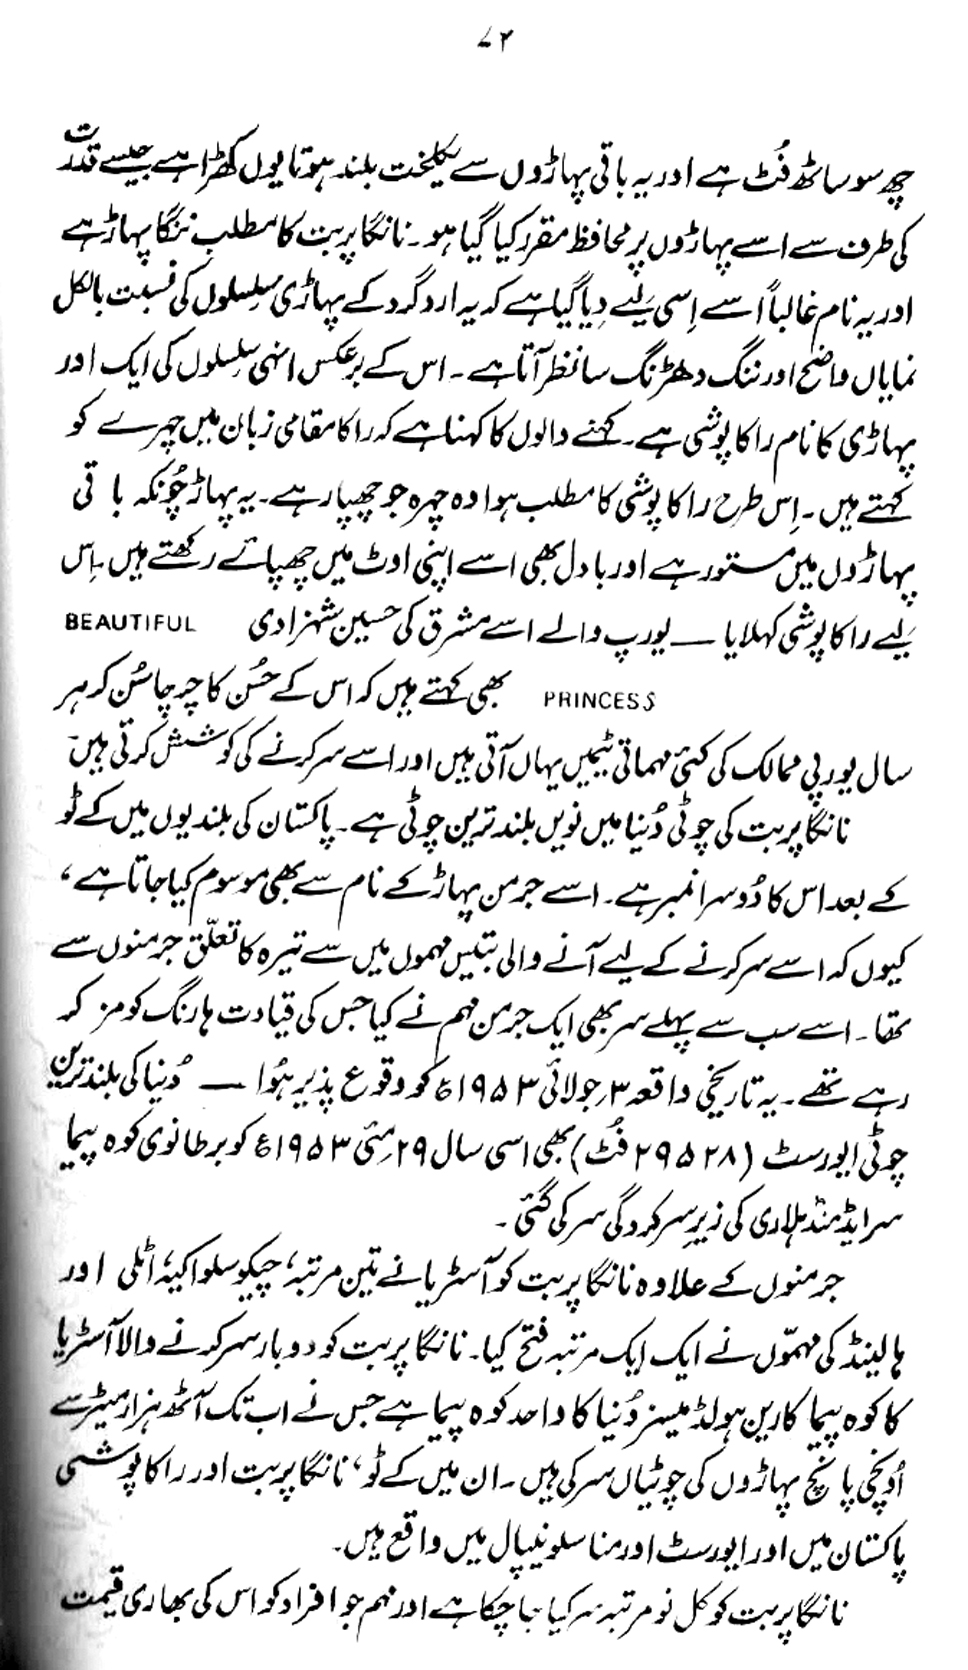 ۷۲
چھ سو ساٹھ فُٹ ہے اور یہ باقی پہاڑوں سے یکلخت بلند ہوتا یوں کھڑا ہے جیسے قدرت
کی طرف سے اسے پہاڑوں پر محافظ مقرر کیا گیا ہو۔ نانگا پربت کا مطلب ننگا پہاڑ ہے
اور یہ نام غالباً اسے اِسی لیے دِیا گیا ہے کہ یہ ارد گرد کے پہاڑی سلِسلوں کی نسبت بالکل
نمایاں واضح اور ننگ دھڑنگ سا نظر آتا ہے۔ اس کے برعکس انہی سلِسلوں کی ایک اور
پہاڑی کا نام راکا پوشی ہے۔ کہنے والوں کا کہنا ہے کہ راکا مقامی زبان میں چہرے کو
کہتے ہیں۔ اِس طرح راکا پوشی کا مطلب ہوا وہ چہرہ جو چھپا رہے۔ یہ پہاڑ چُونکہ باقی
پہاڑوں میں مستور ہے اور بادل بھی اسے اپنی اوٹ میں چھپائے رکھتے ہیں۔ اِس
لیے راکا پوشی کہلایا — یورپ والے اسے مشرق کی حسین شہزادی BEAUTIFUL
PRINCESS بھی کہتے ہیں کہ اس کے حُسن کا چرچا سُن کر ہر
سال یورپی ممالک کی کئی مہماتی ٹیمیں یہاں آتی ہیں اور اسے سر کرنے کی کوشش کرتی ہیں۔
نانگا پربت کی چوٹی دُنیا میں نویں بلند ترین چوٹی ہے۔ پاکستان کی بلندیوں میں کے ٹو
کے بعد اس کا دُوسرا نمبر ہے۔ اسے جرمن پہاڑ کے نام سے بھی موسوم کیا جاتا ہے،
کیوں کہ اسے سر کرنے کے لیے آنے والی بتیس مہموں میں سے تیرہ کا تعلّق جرمنوں سے
تھا۔ اسے سب سے پہلے سر بھی ایک جرمن مہم نے کیا جس کی قیادت ہارنگ کومز کر
رہے تھے۔ یہ تاریخی واقعہ ۳؍جولائی ۱۹۵۳ء کو وقوع پذیر ہُوا — دُنیا کی بلند ترین
چوٹی ایورسٹ (۲۹۵۲۸ فُٹ) بھی اسی سال ۲۹؍مئی ۱۹۵۳ء کو برطانوی کوہ پیما
سر ایڈمنڈ ہلاری کی زیرِ سرکردگی سر کی گئی۔
جرمنوں کے علاوہ نانگا پربت کو آسٹریا نے تین مرتبہ، چیکوسلواکیہ، اٹلی اور
ہالینڈ کی مہمّوں نے ایک ایک مرتبہ فتح کیا۔ نانگا پربت کو دو بار سر کرنے والا آسٹریا
کا کوہ پیما کارین ہولڈ میسنر دُنیا کا واحد کوہ پیما ہے جس نے اب تک آٹھ ہزار میٹر سے
اُونچی پانچ پہاڑوں کی چوٹیاں سر کی ہیں۔ ان میں کے ٹو، نانگا پربت اور راکا پوشی
پاکستان میں اور ایورسٹ اور مناسلو نیپال میں واقع ہیں۔
نانگا پربت کو کل نو مرتبہ سر کیا جا چکا ہے اور مہم جو افراد کو اس کی بھاری قیمت